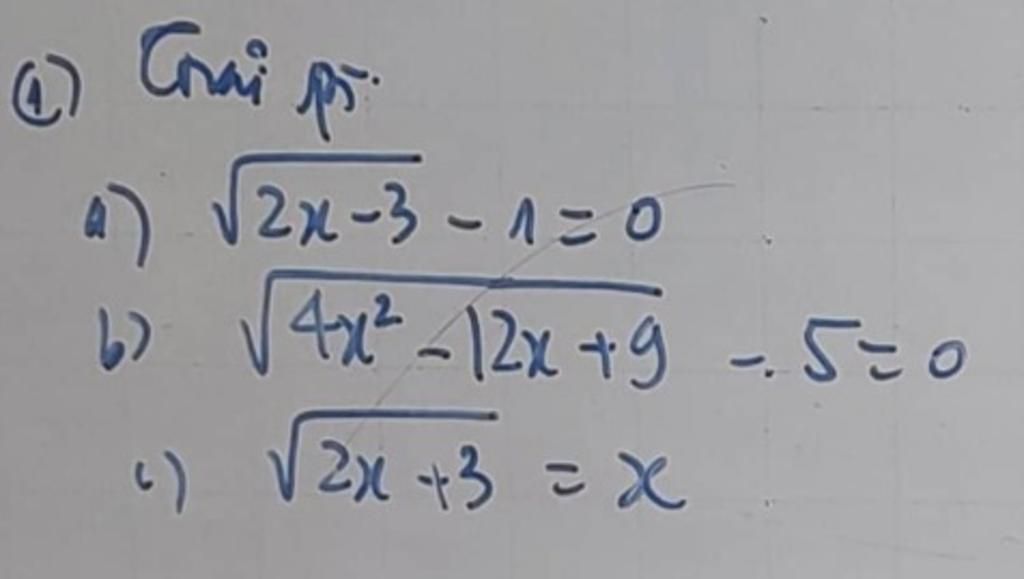 1) Giải pt:
a) √(2x-3) - 1 = 0
b) √(4x² - 12x + 9) - 5 = 0
c) √(2x+3) = x